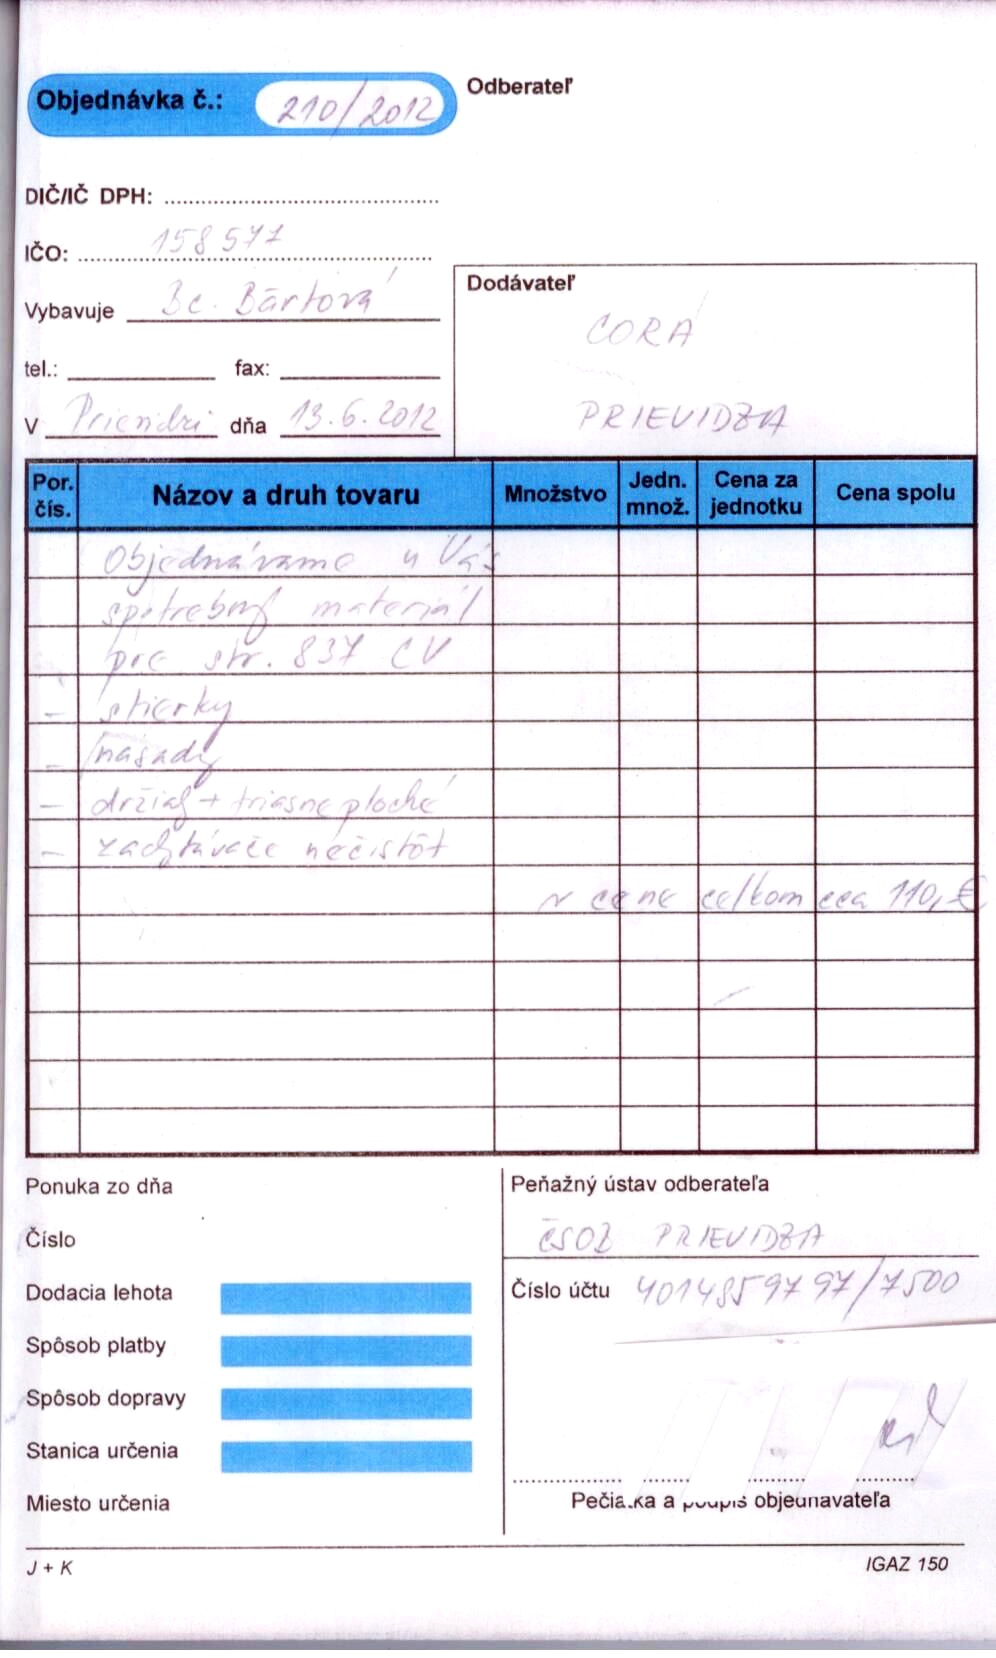 Objednávka č.: 210/2012
Odberateľ
DIČ/IČ DPH:
IČO: 158577
Vybavuje Bc. Bártová
tel.: fax:
V Prievidzi dňa 13.6.2012
Dodávateľ
CORA
PRIEVIDZA
Por. čís. Názov a druh tovaru Množstvo Jedn. množ. Cena za jednotku Cena spolu
Objednávame u Vás
spotrebný materiál
pre str. 837 CV
- stierky
- násady
- držiaky + triasne ploché
- zachytávače nečistôt
v cene celkom cca 110,- €
Ponuka zo dňa
Číslo
Dodacia lehota
Spôsob platby
Spôsob dopravy
Stanica určenia
Miesto určenia
Peňažný ústav odberateľa
ČSOB PRIEVIDZA
Číslo účtu 4014859797/7500
Pečiatka a podpis objednávateľa
J + K
IGAZ 150